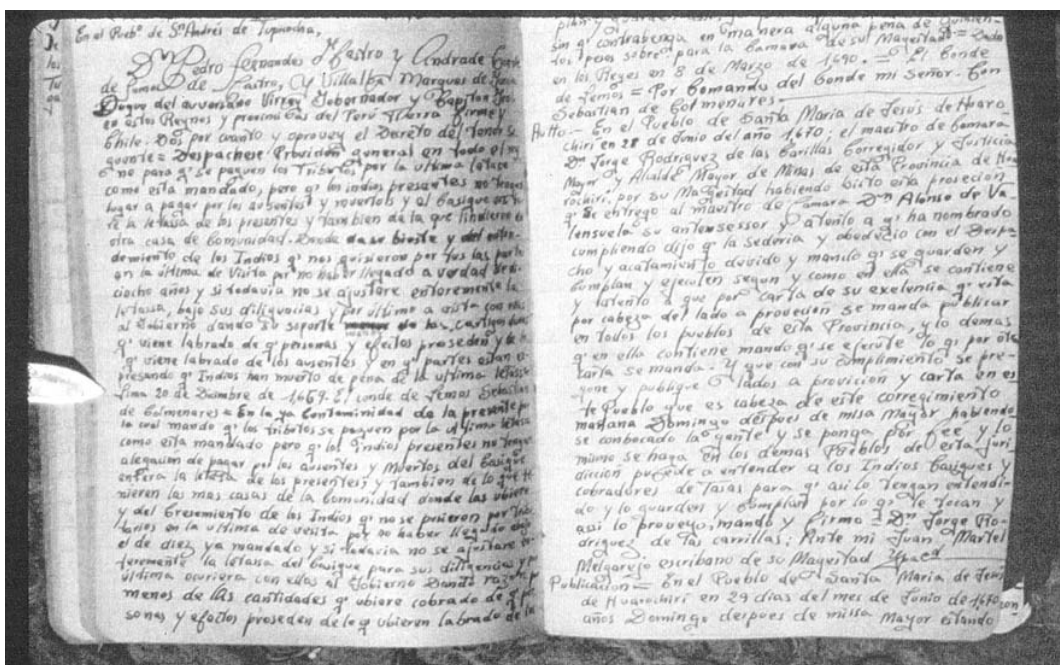 En el Pueb.º de Sn Andrés de Tupicocha,
Dn Pedro Fernandes d Castro y Andrade Conde
de Lemos de Castro, y Villalba Marques de
Duque del Virrey Gobernador y Capitan
en estos Reynos y provincias del Perú tierra firme y
Chile. Dos por cuanto y aprovey el Decreto del tenor se
quente = Despachese Provición general en todo el
no para q.' se paguen los Tributos por la ultima
como esta mandado, pero q.' los indios presentes no tengan
lugar a pagar por los ausentes y
re la de los presentes y tambien de la que
otra casa de Comunidad.
demiento de los Indios q.' nos quisieron por
en la última de Visita por no haber llegado a verdad
ciocho años y si todavia no se ajustare enteremente la
letassa, bajo sus diliguacias y por ultimo a
al Gobierno dando su soporte de las
q.' viene labrado de q.' personas y efeitos proseden y
q.' viene labrado de los ausentes y en q.' partes estan
presando q.' Indios han muerto de pena de la ultima
Lima 20 de Diciembre de 1669. El conde de Lemos Sebastian
de Colmenares = En la ya Contaminidad de la presente
la cual mando q.' los tributos se paguen por la ultima letasa
como esta mandado pero q.' los Indios presentes no tengan
alegación de pagar por los ausentes y Muertos del Casique
entera la letasa de los presentes; y tambien de lo que
nieren las mas casas de la Comunidad donde las ubiere
y del Cresemiento de los Indios q.' no se pusieron por
tarios en la ultima de vesita por no haber llegado
el de diez ya mandado y si todavia no se ajustare
teremente la letana del Casique para sus diligencias y
última ocuriera con ellas al Gobierno Dando razon,
menos de las cantidades q.' ubiere cobrado de q.'
sonas y efectos proseden de lo q.' ubieren labrado de
y guarden
sin q.' contrabenga en manera alguna pena de Quinien-
tos pesos sobre para la Camara de sul Magestad = Dado
en los Reyes en 8 de Marzo de 1690. = El Conde
de Lemos = Por Comando del Conde mi Señor. Don
Sebastian de Colmenares.
Autto - En el Pueblo de Santa Maria de Jesús de Huaro
chiri en 28 de Junio del año 1670; el maestro de Camara
Dn Jorge Rodriguez de las Carillas Corregidor y Justicia
Mayor y Alcalde Mayor de Minas de esta Provincia de Hua
rochiri, por su Magestad habiendo bisto esta prosecion
q.' se entrego al maestro de Camara Dn Alonso de Va
lensuela su antessessor y atento a q.' ha nombrado
cumpliendo dijo q.' la sederia y obedecio con el Despa-
cho y acatamiento devido y mando q.' se guarden y
Complan y ejecuten segun y como en ella se contiene
y latento a que por carta de su exelencia q.' esta
por cabeza del lado a proveción se manda publicar
en todos los pueblos de esta Provincia, y lo demas
q.' en ella contiene mando q.' se ejerute lo q.' por
carta se manda. Y que con su cumplimiento se pre-
gone y publique lados a provicion y carta en es
te Pueblo que es cabeza de este corregimiento
mañana Domingo despues de misa Mayor, habiendo
se combocado la gante y se ponga por Fee, y lo
mismo se haga en los demas Pueblos de esta juri
dicción procede a entender a los Indios Casiques y
cobradores de Tasas para q.' asi lo tengan entendi-
do y lo guarden y Complan por lo q.' le tocan y
asi lo proveyo, mando y Firmo = Dn Jorge Ro-
driguez de las carrillas; Ante mi Juan Martel
Melgarejo escribano de su Magestad
Publicacion = En el Pueblo de Santa Maria de Jesús
de Huarochiri en 29 dias del mes de Junio de 1670
años Domingo despues de missa Mayor estando